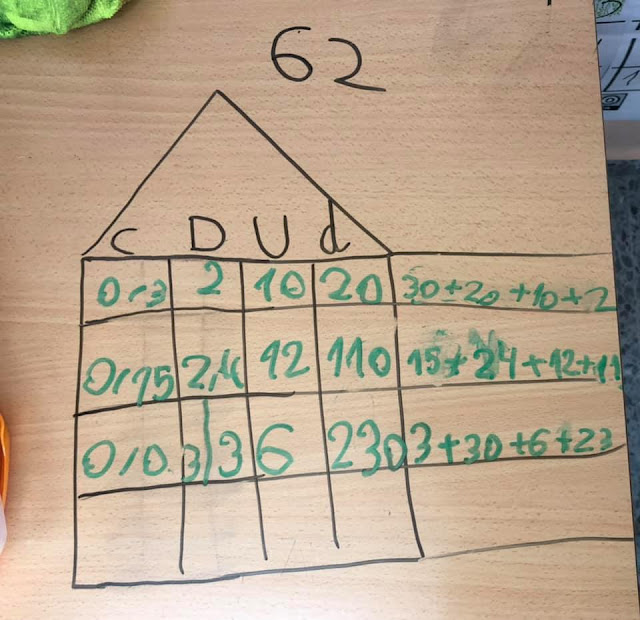 62
C D U d
0,3 2 10 20 30+20+10+2
0,15 2,4 12 110 15+24+12+11
0,0 3 3 6 230 3+30+6+23